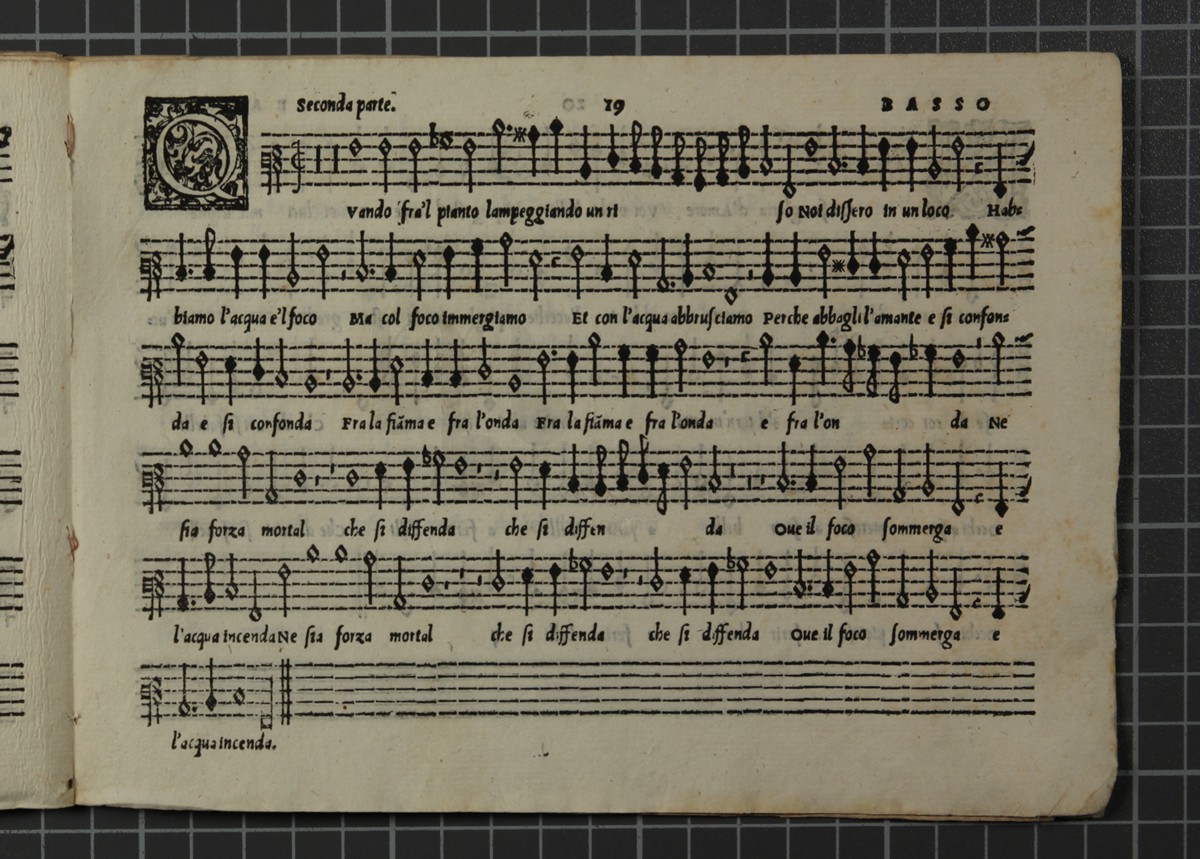 Seconda parte. 19 BASSO
Q
Vando fra'l pianto lampeggiando un ri so Noi dissero in un loco Habe
biamo l'acqua e'l foco Ma col foco immergiamo Et con l'acqua abbrusciamo Perche abbagli l'amante e si confons
da e si confonda Fra la fiãma e fra l'onda Fra la fiãma e fra l'onda e fra l'on da Ne
sia forza mortal che si diffenda che si diffen da Oue il foco sommerga e
l'acqua incenda Ne sia forza mortal che si diffenda che si diffenda Oue il foco sommerga e
l'acqua incenda.